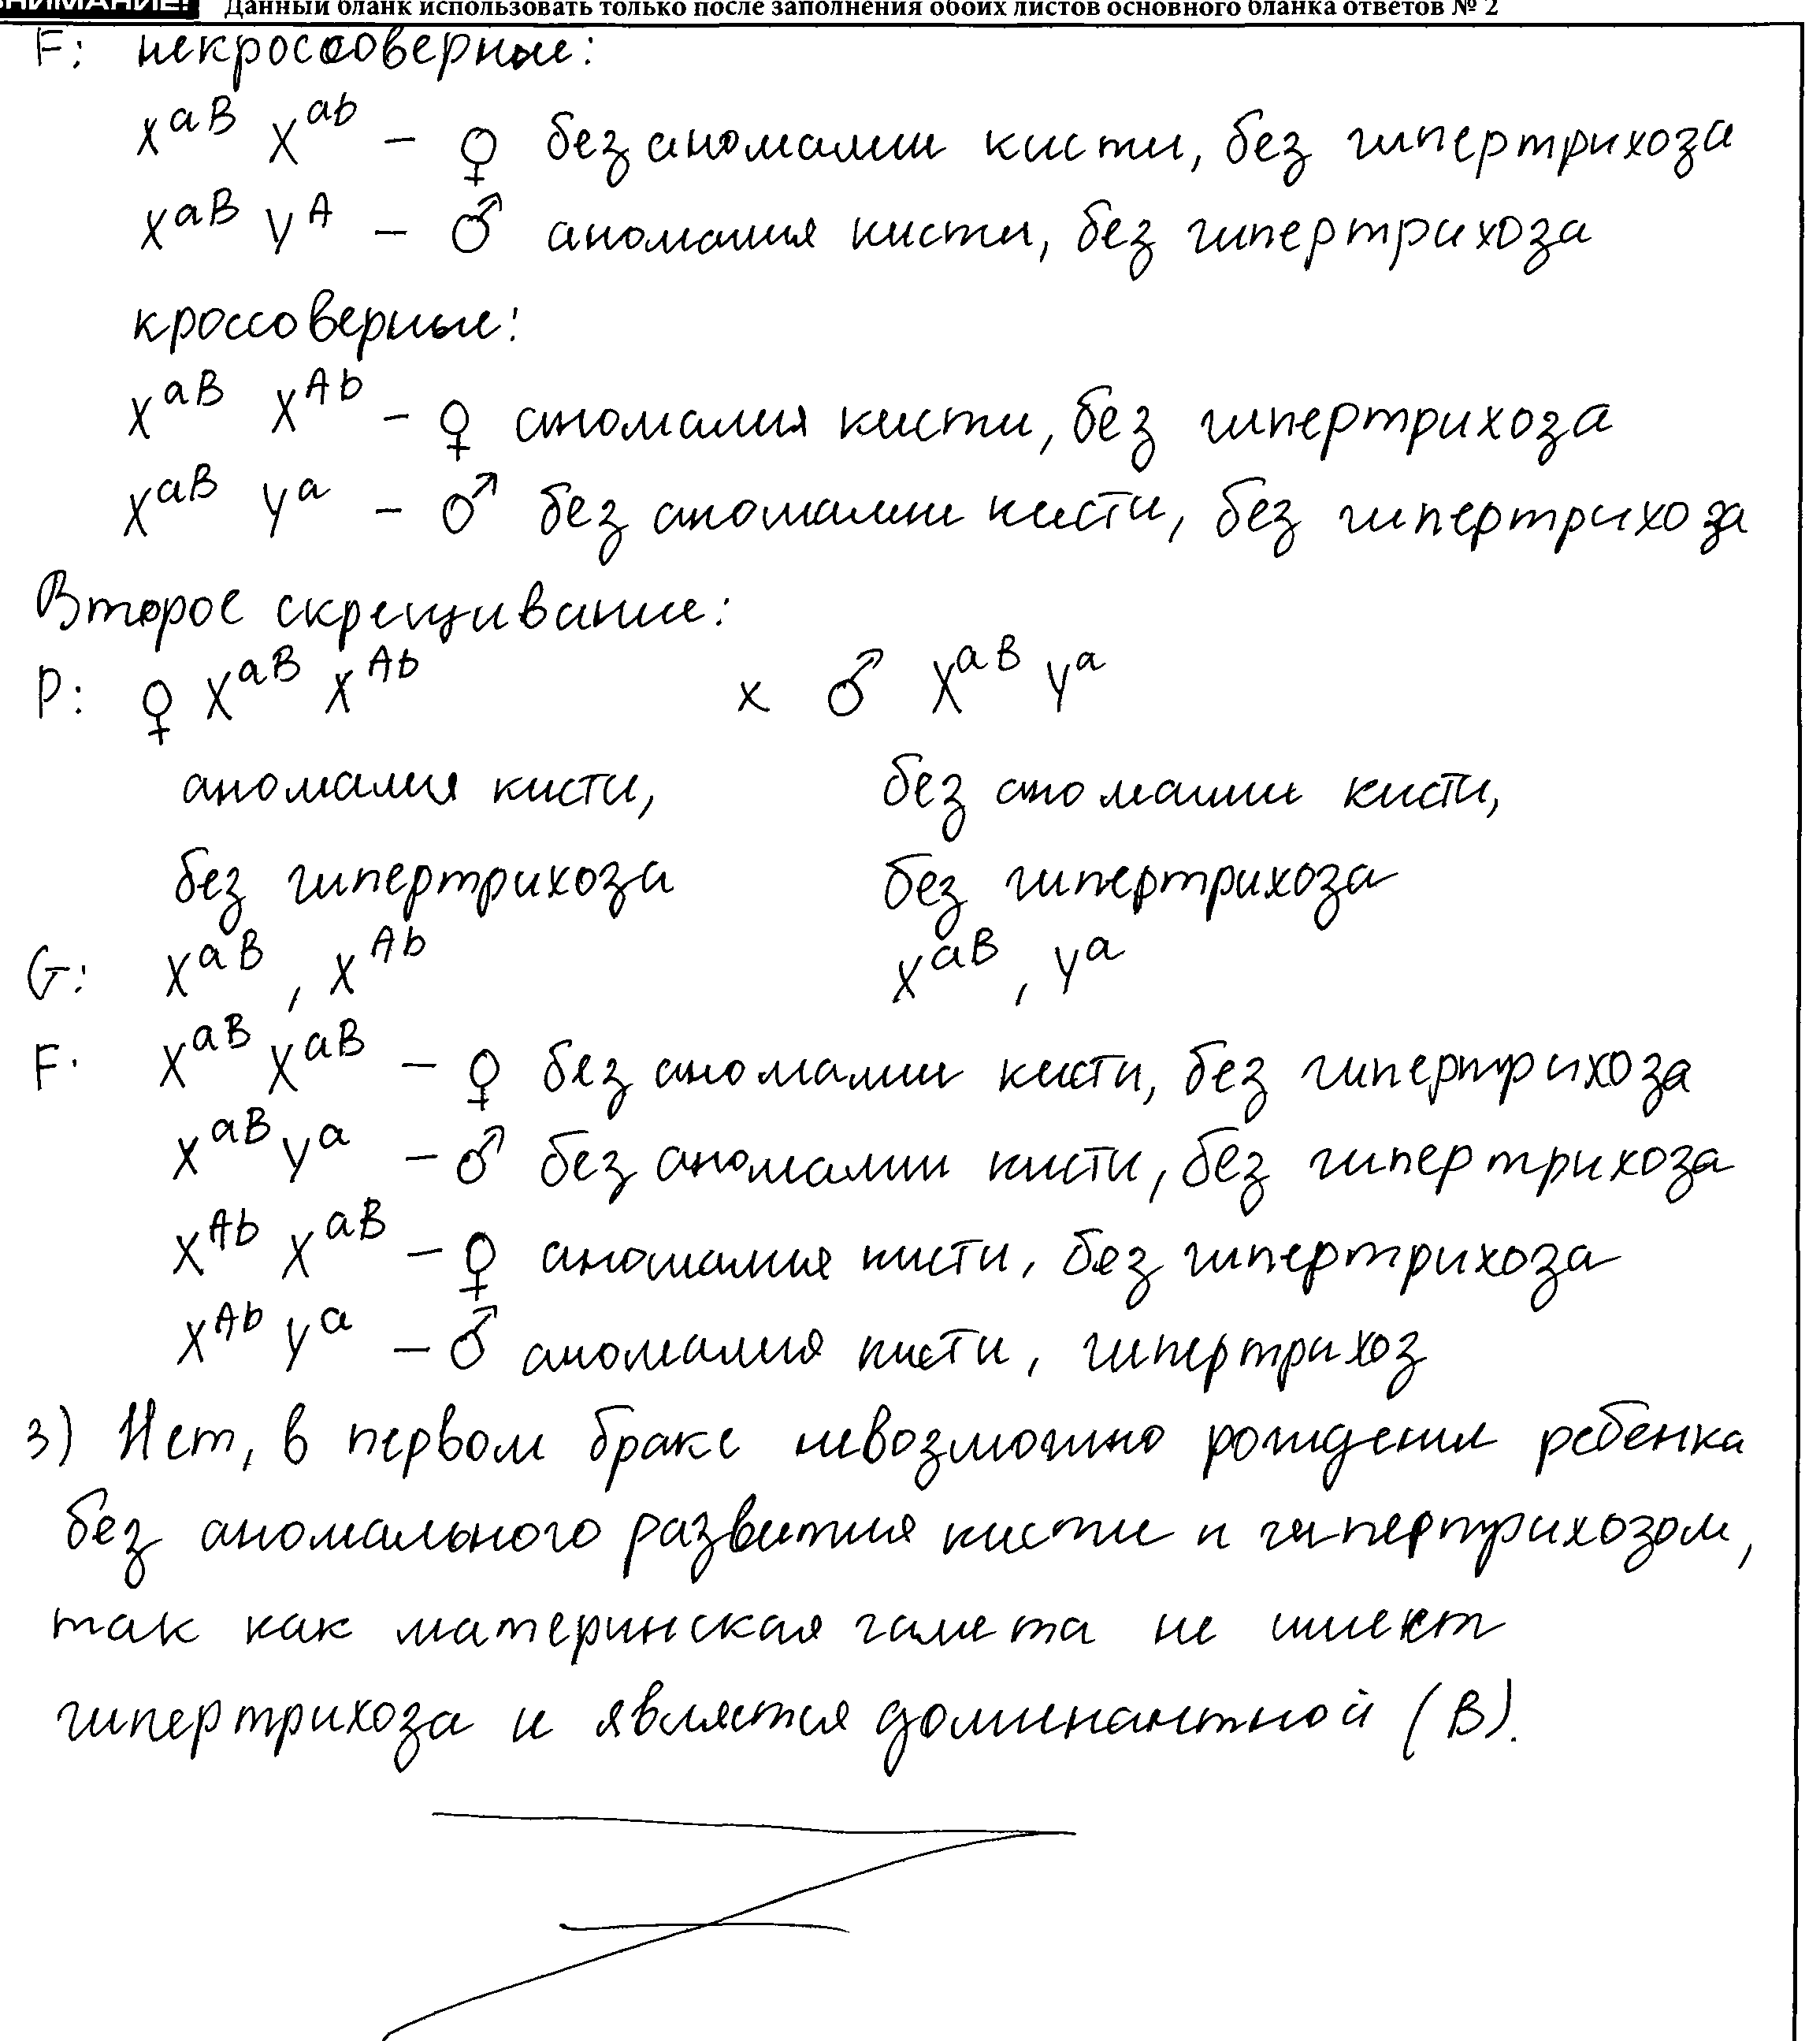 ВНИМАНИЕ! Данный бланк использовать только после заполнения обоих листов основного бланка ответов № 2
F: некроссоверные:
X^aB X^ab – ♀ без аномалии кисти, без гипертрихоза
X^aB Y^A – ♂ аномалия кисти, без гипертрихоза
кроссоверные:
X^aB X^Ab – ♀ аномалия кисти, без гипертрихоза
X^aB Y^a – ♂ без аномалии кисти, без гипертрихоза
Второе скрещивание:
P: ♀ X^aB X^Ab x ♂ X^aB Y^a
аномалия кисти, без аномалии кисти,
без гипертрихоза без гипертрихоза
G: X^aB, X^Ab X^aB, Y^a
F. X^aB X^aB – ♀ без аномалии кисти, без гипертрихоза
X^aB Y^a – ♂ без аномалии кисти, без гипертрихоза
X^Ab X^aB – ♀ аномалия кисти, без гипертрихоза
X^Ab Y^a – ♂ аномалия кисти, гипертрихоз
3) Нет, в первом браке невозможно рождения ребенка
без аномального развития кисти и гипертрихозом,
так как материнская гамета не имеет
гипертрихоза и является доминантной (B).